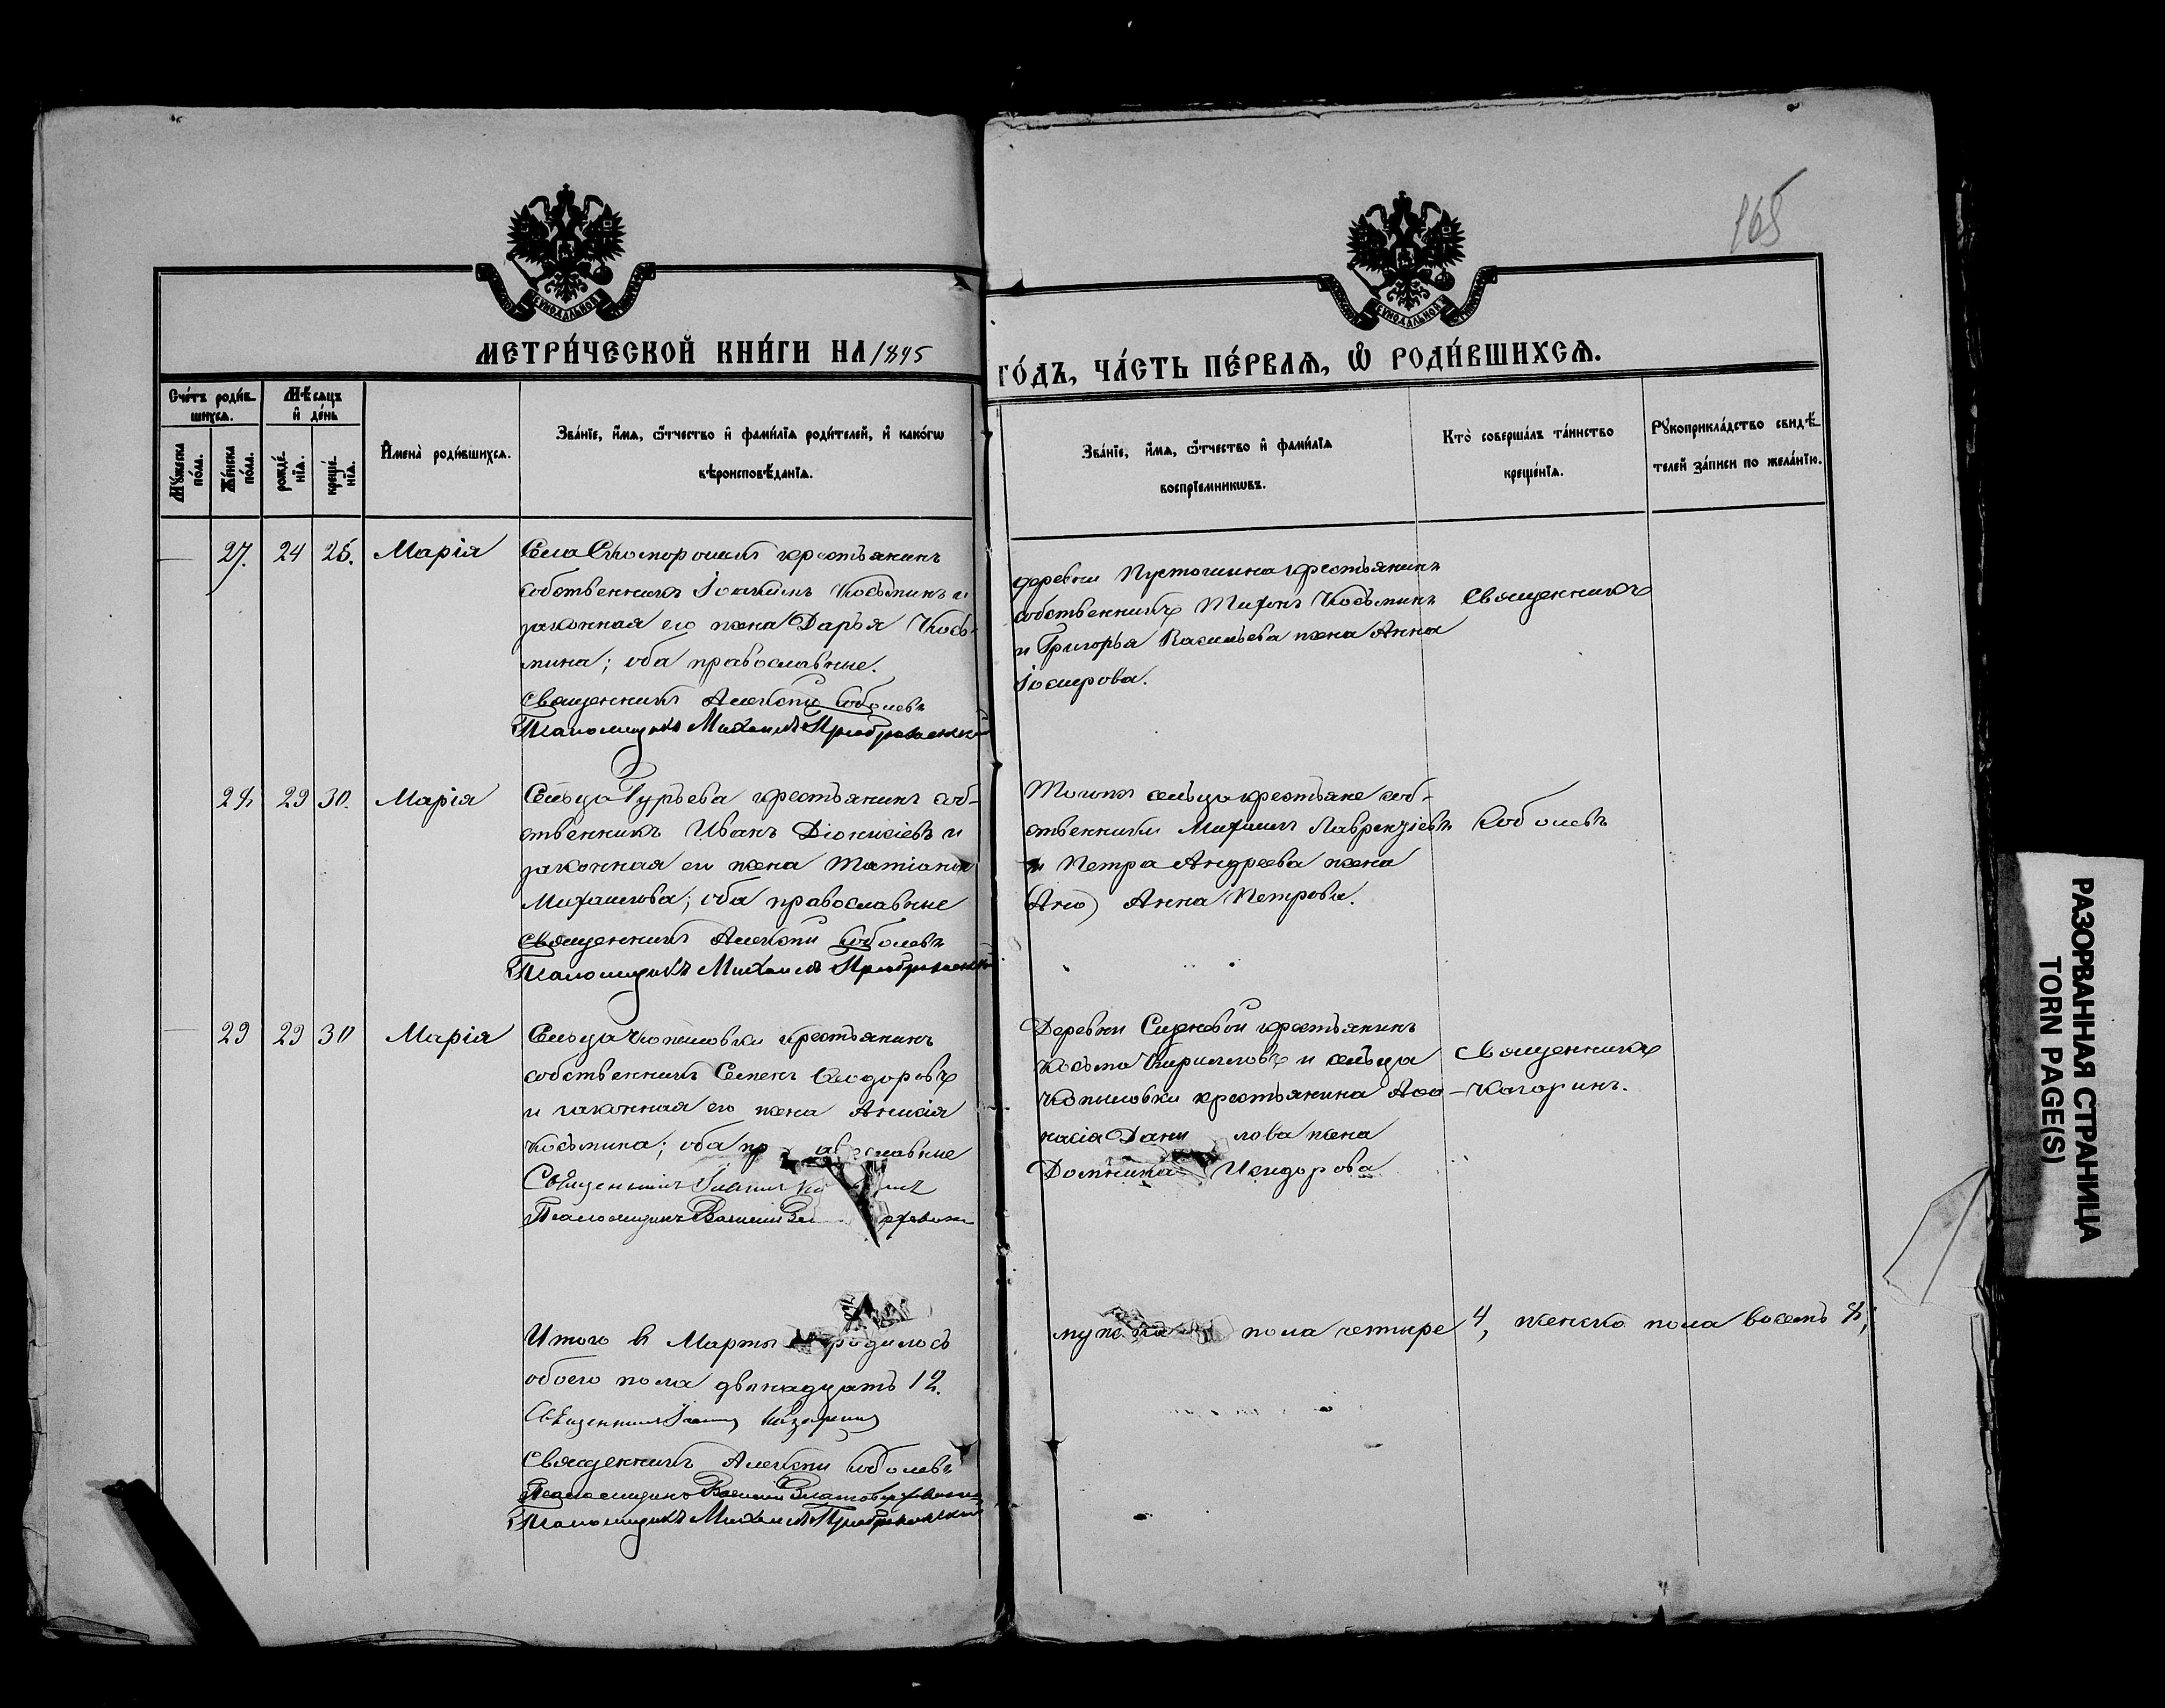 165
МЕТРИ́ЧЕСКОЙ КНИ́ГИ НА 1895
ГО́ДЪ, ЧА́СТЬ ПЕ́РВАѦ, Ѽ РОДИ́ВШИХСѦ.
Сче́тъ роди́в-
шихсѧ.
Мѣ́сѧцъ
и де́нь
Мꙋ́жеска по́ла.
Же́нска по́ла.
рожде́нїѧ.
креще́нїѧ.
И҆мена̀ роди́вшихсѧ.
Зва́нїе, и҆́мѧ, ѻ҆́тчество и҆ фами́лїѧ роди́телей, и҆ како́гѡ
вѣроисповѣ́данїѧ.
Зва́нїе, и҆́мѧ, ѻ҆́тчество и҆ фами́лїѧ
воспрїе́мникѡвъ.
Кто̀ соверша́лъ та́инство
креще́нїѧ.
Рꙋкоприкла́дство свидѣ́-
телей за́писи по жела́нїю.
27. 24 25. Марія
Села крестьянинъ
собственникъ Іоакимъ Косьминъ и
законная его жена Дарья Кось-
мина; оба православные.
Священникъ Алексѣй Соболевъ
Псаломщикъ Михаилъ Преображенскій
деревни Пустошина крестьянинъ
собственникъ Тихонъ Косьминъ
и Григорья Васильева жена Анна
Іосифова.
Священникъ
28 29 30. Марія
Сельца Гурьева крестьянинъ соб-
ственникъ Иванъ Діонисіевъ и
законная его жена Татіана
Михаилова; оба православные
Священникъ Алексѣй Соболевъ
Псаломщикъ Михаилъ Преображенскій
Тогоже сельца крестьяне соб-
ственники Михаилъ Лаврентіевъ
и Петра Андреева жена
Анна Петрова.
Соболевъ
29 29 30 Марія
Сельца Копыловки крестьянинъ
собственникъ Семенъ Ѳеодоровъ
и законная его жена Анисія
Косьмина; оба православные
Священникъ
Псаломщикъ Василій
Деревни крестьянинъ
Косьма Кирилловъ и сельца
Копыловки крестьянина Аѳа-
насія Данилова жена
Домника Исидорова
Священникъ
Казаринъ.
Итого въ Мартѣ родилось
обоего пола двѣнадцать 12.
Священникъ Казаринъ
Священникъ Алексѣй Соболевъ
Псаломщикъ Василій Златоверховниковъ
Псаломщикъ Михаилъ Преображенскій
мужска пола четыре 4, женско пола восемь 8,
РАЗОРВАННАЯ СТРАНИЦА
TORN PAGE(S)